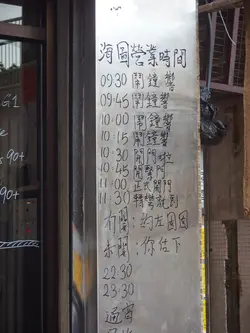 海圖營業時間
09:30 鬧鐘響
09:45 鬧鐘響
10:00 鬧鐘響
10:15 鬧鐘響
10:30 開門
10:45 開緊門
11:00 正式開門
11:30
有閘:約左周圍
未開:你估下
22:30
23:30
過齋
G1
90+
90+